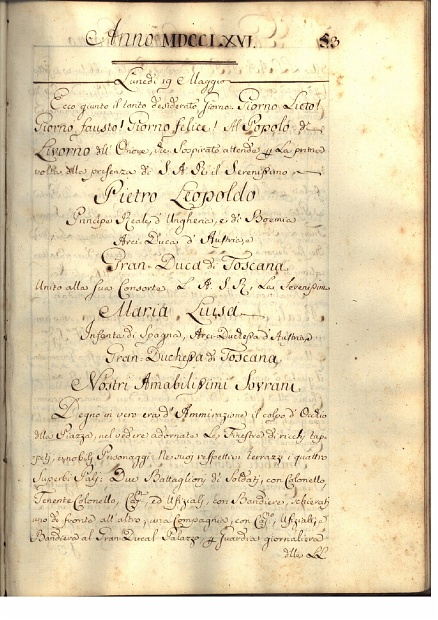 Anno MDCCLXVI. 53
Lunedì 19 Maggio
Ecco giunto il tanto desiderato Giorno. Giorno Lieto!
Giorno fausto! Giorno felice! Al Popolo di
Livorno dell' Onore, che Sospirato attende p. La prima
volta della presenza di S. A. R. il Serenissimo
Pietro Leopoldo
Principe Reale d' Ungheria, e di Boemia
Arci-Duca d' Austria, e
Gran-Duca di Toscana
Unito alla Sua Consorte L. A. S. R. La Serenissima
Maria Luisa
Infanta di Spagna, Arci-Duchessa d' Austria, e
Gran-Duchessa di Toscana
Nostri Amabilissimi Sovrani
Degno in vero era d' Ammirazione il colpo d' Occhio
della Piazza, nel vedere adornate Le Finestre di ricchi tap-
peti, e nobili Personaggi. Ne suoi respettivi terrazzi i quattro
Superbi Palj: Due Battaglioni di Soldati, con Colonello,
Tenente Colonello, ed Ufiziali, con Bandiere, schierati
uno di fronte all' altro, una Compagnia, con Ufiziali, e
Bandiera al Gran Ducal Palazzo, p. Guardia giornaliera
delle LL